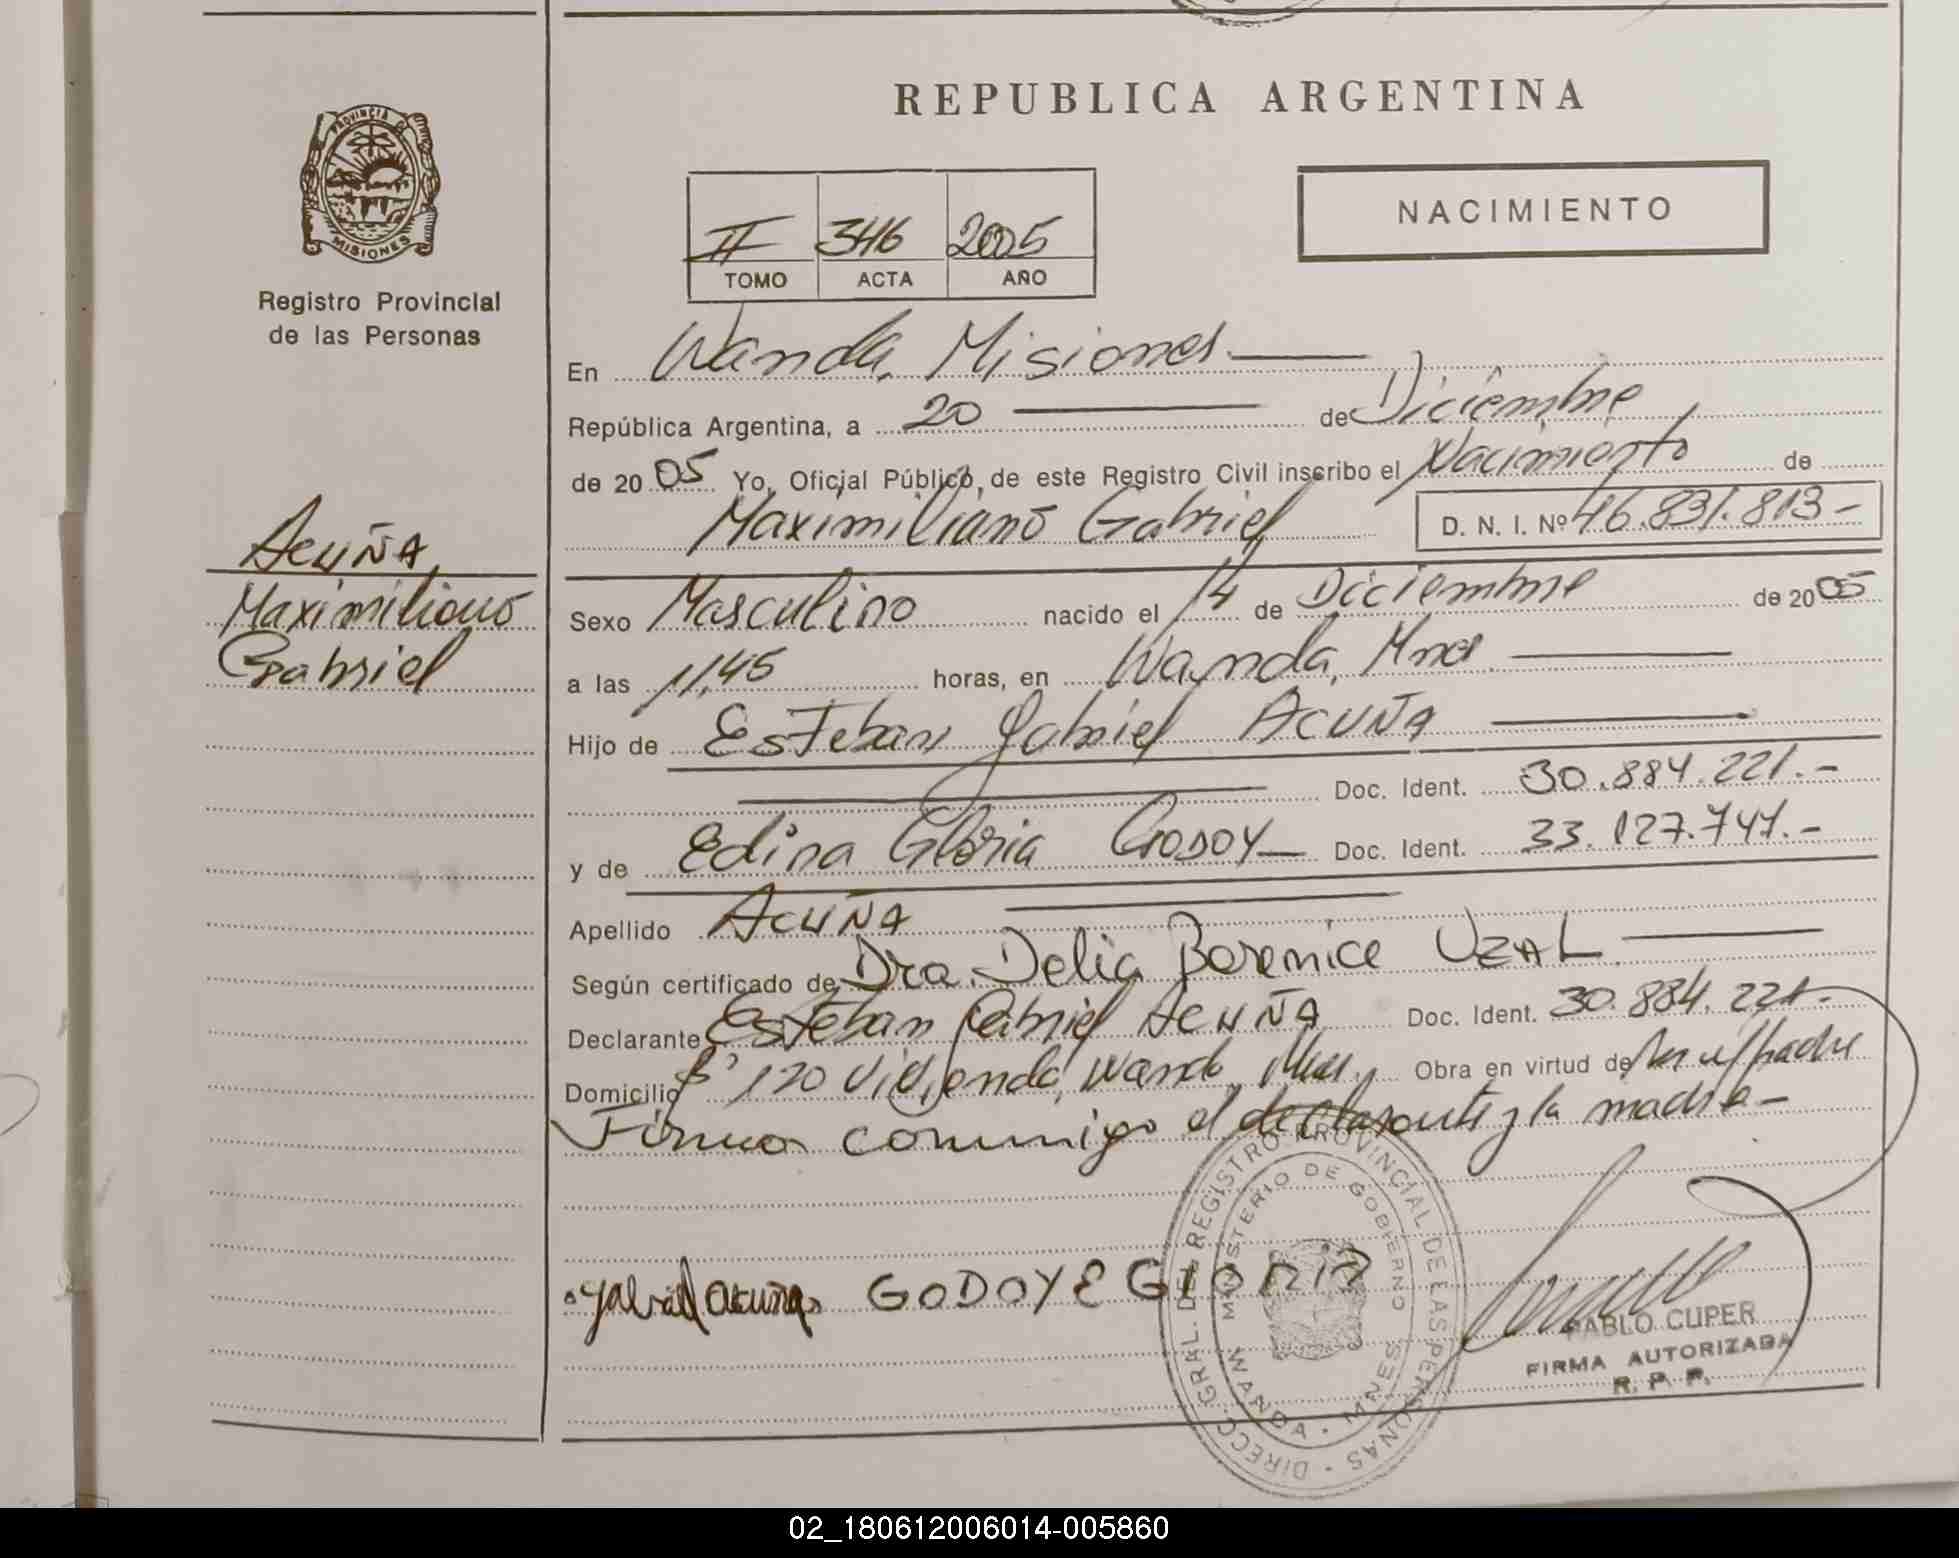 REPUBLICA ARGENTINA
PROVINCIA DE
MISIONES
Registro Provincial
de las Personas
II 346 2005
TOMO ACTA AÑO
NACIMIENTO
En Wanda, Misiones
República Argentina, a 20 de Diciembre
de 2005 Yo, Oficial Público, de este Registro Civil inscribo el Nacimiento de
Maximiliano Gabriel D. N. I. Nº 46.831.813-
ACUÑA,
Maximiliano
Gabriel
Sexo Masculino nacido el 14 de Diciembre de 2005
a las 11,45 horas, en Wanda, Mnes.
Hijo de Esteban Gabriel ACUÑA
Doc. Ident. 30.884.221.-
y de Edina Gloria GODOY Doc. Ident. 33.127.747.-
Apellido ACUÑA
Según certificado de Dra. Delia Berenice UZAL
Declarante Esteban Gabriel ACUÑA Doc. Ident. 30.884.221-
Domicilio Bº 120 Vivienda, Wanda, Mnes. Obra en virtud de ser el padre
Firman conmigo el declarante y la madre-
Gabriel Acuña GODOY E GLORIA
DIRECC. GRAL. DEL REGISTRO PROVINCIAL DE LAS PERSONAS
MINISTERIO DE GOBIERNO
WANDA · MNES.
PABLO CUPER
FIRMA AUTORIZADA
R. P. P.
02_180612006014-005860